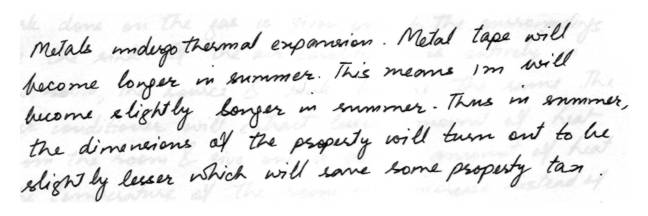 Metals undergo thermal expansion. Metal tape will
become longer in summer. This means 1m will
become slightly longer in summer. Thus in summer,
the dimensions of the property will turn out to be
slightly lesser which will save some property tax.